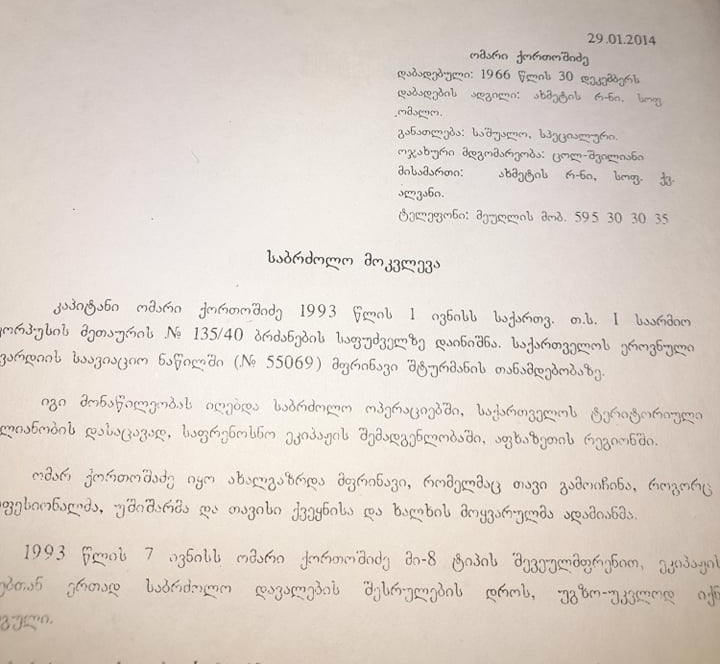 29.01.2014
ომარი ქორთოშიძე
დაბადებული: 1966 წლის 30 დეკემბერს
დაბადების ადგილი: ახმეტის რ-ნი, სოფ.
ომალო.
განათლება: საშუალო, სპეციალური.
ოჯახური მდგომარეობა: ცოლ-შვილიანი
მისამართი: ახმეტის რ-ნი, სოფ. ქვ.
ალვანი.
ტელეფონი: მეუღლის მობ. 595 30 30 35
საბრძოლო მოკვლევა
კაპიტანი ომარი ქორთოშიძე 1993 წლის 1 ივნისს საქართვ. თ.ს. I საარმიო
კორპუსის მეთაურის № 135/40 ბრძანების საფუძველზე დაინიშნა. საქართველოს ეროვნული
ვარდიის საავიაციო ნაწილში (№ 55069) მფრინავი შტურმანის თანამდებობაზე.
იგი მონაწილეობას იღებდა საბრძოლო ოპერაციებში, საქართველოს ტერიტორიული
ლიანობის დასაცავად, საფრენოსნო ეკიპაჟის შემადგენლობაში, აფხაზეთის რეგიონში.
ომარ ქორთოშაძე იყო ახალგაზრდა მფრინავი, რომელმაც თავი გამოიჩინა, როგორც
ფესიონალმა, უშიშარმა და თავისი ქვეყნისა და ხალხის მოყვარულმა ადამიანმა.
1993 წლის 7 ივნისს ომარი ქორთოშიძე მი-8 ტიპის შვეულმფრენით, ეკიპაჟის
ებთან ერთად საბრძოლო დავალების შესრულების დროს, უგზო-უკვლოდ იქნ
გული.